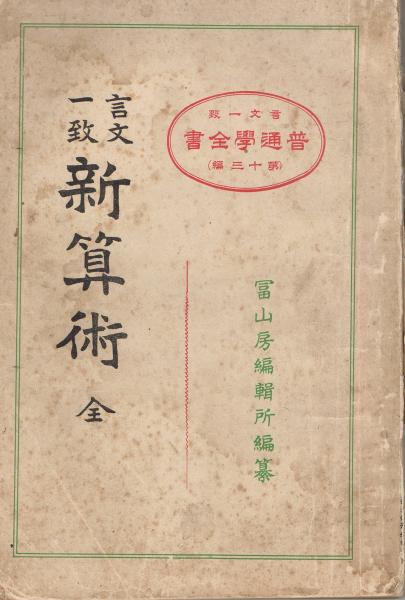 言文一致
普通學全書
(第十三編)
冨山房編輯所編纂
言文
一致
新算術
全